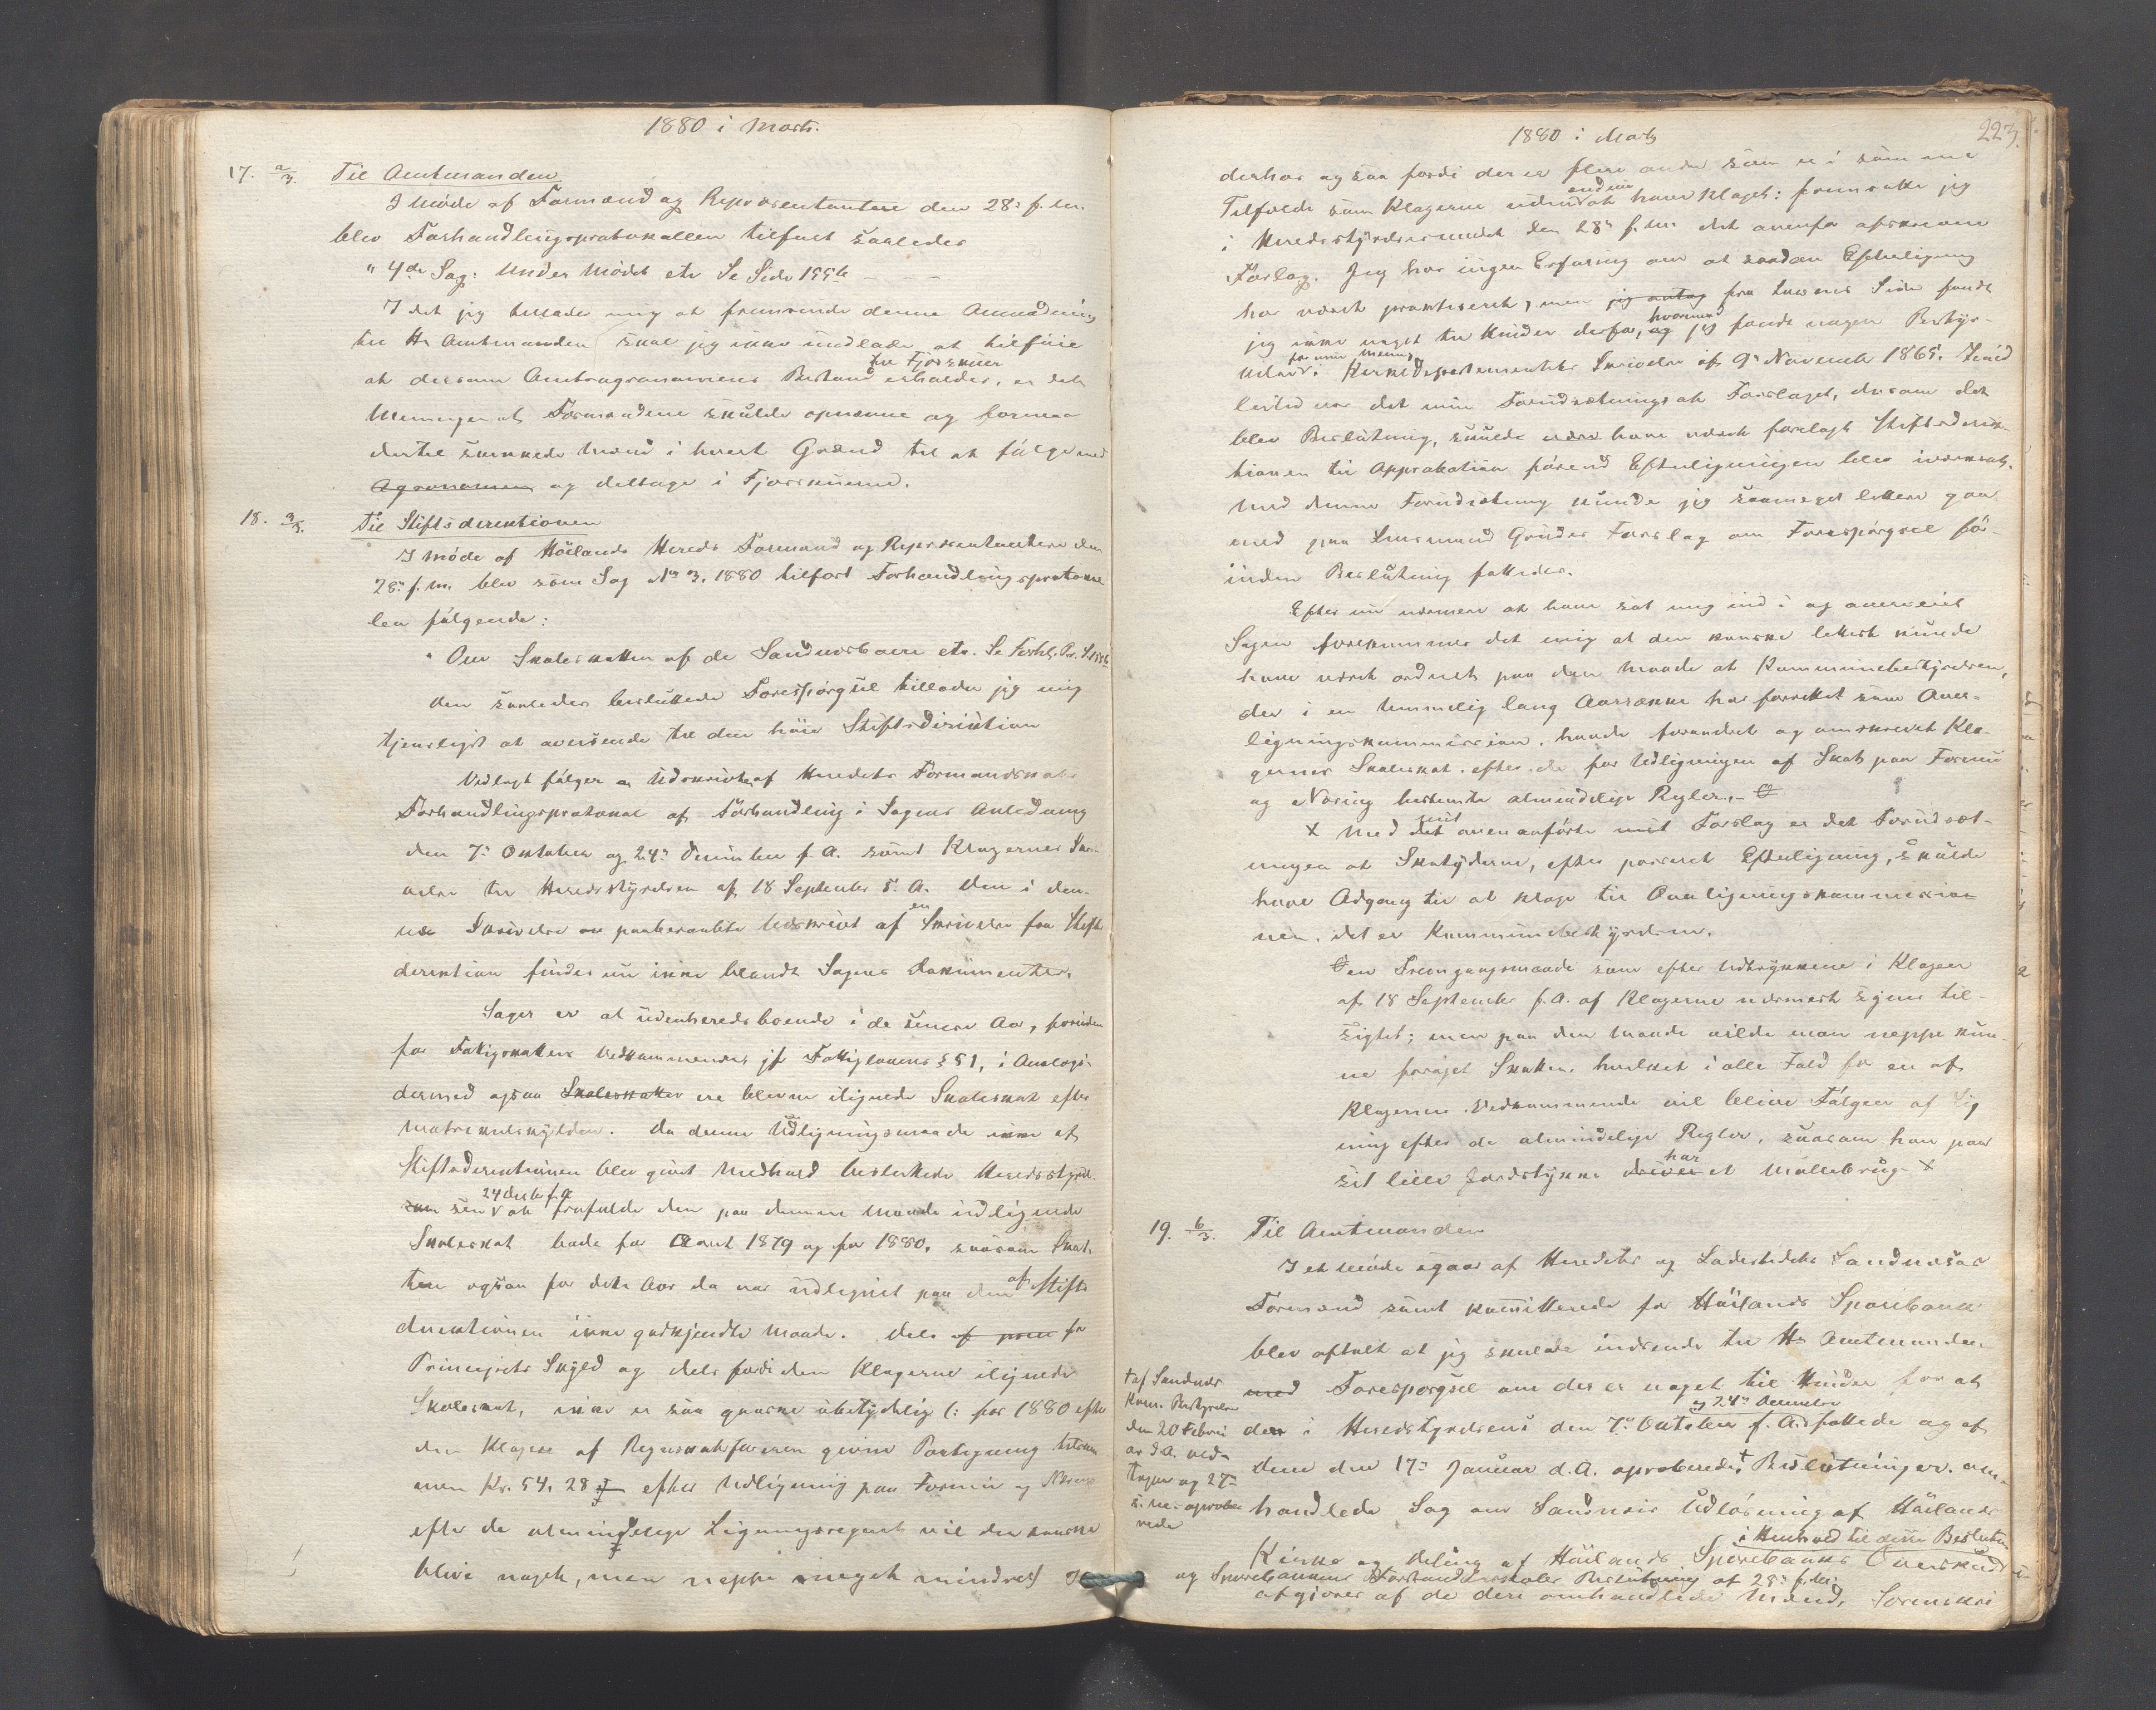 1880 i Marts.
17. 2/3. Til Amtmanden
I Møde af Formænd og Repræsentantere den 28de f. M.
blev Forhandlingsprotokollen tilført saaledes
"4de Sag: Under Mødet etc Se Side 155b
I det jeg tillader mig at fremsende denne Anmodning
til Hr Amtmanden skal jeg ikke undlade at tilføie
at dersom Amtsagronomens Bistand til Fjøsskuer erholdes, er det
Meningen at Formændene skulde opnævne og formaa
dertil skikkede Mænd i hvert Grænd til at følge med
Agronomen og deltage i Fjøsskuerne.
18. 3/3. Til Stiftsdirektionen
I Møde af Høilands Hereds Formænd og Repræsentantere den
28de f. M. blev som Sag No 3. 1880 tilført Forhandlingsprotokol-
len følgende:
"Om Skoleskatten af de Sandnesboere etc. Se Forhs. Pr. S. 155b
Den saaledes besluttede Forespørgsel tillader jeg mig
tjenstligst at oversende til den høie Stiftsdirektion
Vedlagt følger en Udskrivt af Heredets Formandskabs
Forhandlingsprotokol af Forhandling i Sagens Anledning
den 7de Oktober og 24de December f. A. samt Klagernes Skri-
velse til Heredsstyrelsen af 18 September s. A. Den i den-
ne Skrivelse paaberaabte Udskrivt af en Skrivelse fra Stifts
direktion findes nu ikke blandt Sagens Dokumenter.
Sagen er at udenheredsboende i de senere Aar, foruden
for Fatigskattens Vedkommende jf Fattiglovens § 51, i Analogi
dermed ogsaa Skoleskatten ere blevne ilignede Skoleskat efter
Matrikulskylden. Da denne Udligningsmaade ikke af
Stiftsdirektionen blev givet Medhold besluttede Heredsstyrel-
sen 24 Decbr f. A. at frafalde den paa denne Maade udlignede
Skoleskat bade for Aaret 1879 og for 1880, saasom Skat-
ten ogsaa for dette Aar da var udlignet paa den af Stifts
direktionen ikke godkjendte Maade. Dels af for
Princippets Skyld og dels fordi den Klagerne ilignede
Skoleskat, ikke er saa ganske ubetydelig (: for 1880 efter
den Klagere af Regnskabsføreren givne Paategning tilsam
men Kr. 54. 28 efter Udligning paa Formue og Næring
efter de almindelige Ligningsregler vil den kanske
blive noget, men neppe meget mindre)
1880 i Marts
223.
derhos og saa fordi der er flere andre som er i samme
Tilfælde som Klagerne uden endnu at have klaget: fremsatte jeg
i Heredsstyrelsesmødet den 28de f. M. det ovenfor afskrevne
Forslag. Jeg har ingen Erfaring om at saadan Efterligning
har været praktiseret, men jeg antog fra Lovens Side fandt
jeg ikke noget til Hinder derfor, hvorimod jeg fandt nogen Bestyr-
kelse for min Mening i Kirkedepartementets Skrivelse af 9de November 1865. Imid
lertid var det min Forudsætning at Forslaget, dersom det
blev Beslutning, skulde have været forelagt Stiftsdirek-
tionen til Approbation førend Efterligningen blev iværksat.
Med denne Forudsætning kunde jeg saameget lettere gaa
med paa Lensmand Gjudes Forslag om Forespørgsel før-
inden Beslutning fattedes.
Efter nu nærmere at have sat mig ind i og overveiet
Sagen forekommer det mig at den kanske lettest kunde
have været ordnet paa den Maade at Kommunebestyrelsen,
der i en temmelig lang Aarrække har forrettet som Over-
ligningskommission, havde forandret og omskrevet Kla-
gernes Skoleskat efter de for Udligningen af Skat paa Formue
og Næring bestemte almindelige Regler.
x Med mit ovenanførte mit Forslag er det Forudsæt-
ningen at Skatyderne, efter passeret Efterligning, skulde
have Adgang til at klage til Overligningskommissio-
nen, det er Kommunebestyrelsen.
Den Fremgangsmaade som efter Udtrykkene i Klagen
af 18 September f. A. af Klagerne nærmest synes til-
sigtet; men paa den Maade vilde man neppe kun-
ne forøget Skatten, hvilket i alle Fald for en af
Klagernes Vedkommende vil blive Følgen af Lig
ning efter de almindelige Regler, saasom han paa
sit lille Jordstykke har et Møllebrug x
19. 6/3. Til Amtmanden
I et Møde igaar af Heredets og Ladestedets Sandnesses
Formænd samt komitterede for Høilands Sparebank
blev aftalt at jeg skulde indsende til Hr Amtmanden
med Forespørgsel om der er noget til Hinder for at
den i Heredstyrelsens den 7de Oktober og 24de December f. A. fattede og af
dem den 17de Januar d. A. aproberede † Beslutninger om-
handlede Sag om Sandnesses Udløsning af Høilands
Kirke og Deling af Høilands Sparebanks Overskud i Henhold til denne Beslutn
og Sparebankens Forstanderskabs Beslutning af 28de f. M.
afgjøres af de deri omhandlede Mænd, Sorenskri
† af Sandnes
Kom. Bestyrelse
den 20 Februa
ar d. A. ved-
tagne og 27de
s. M. aprobe
rede